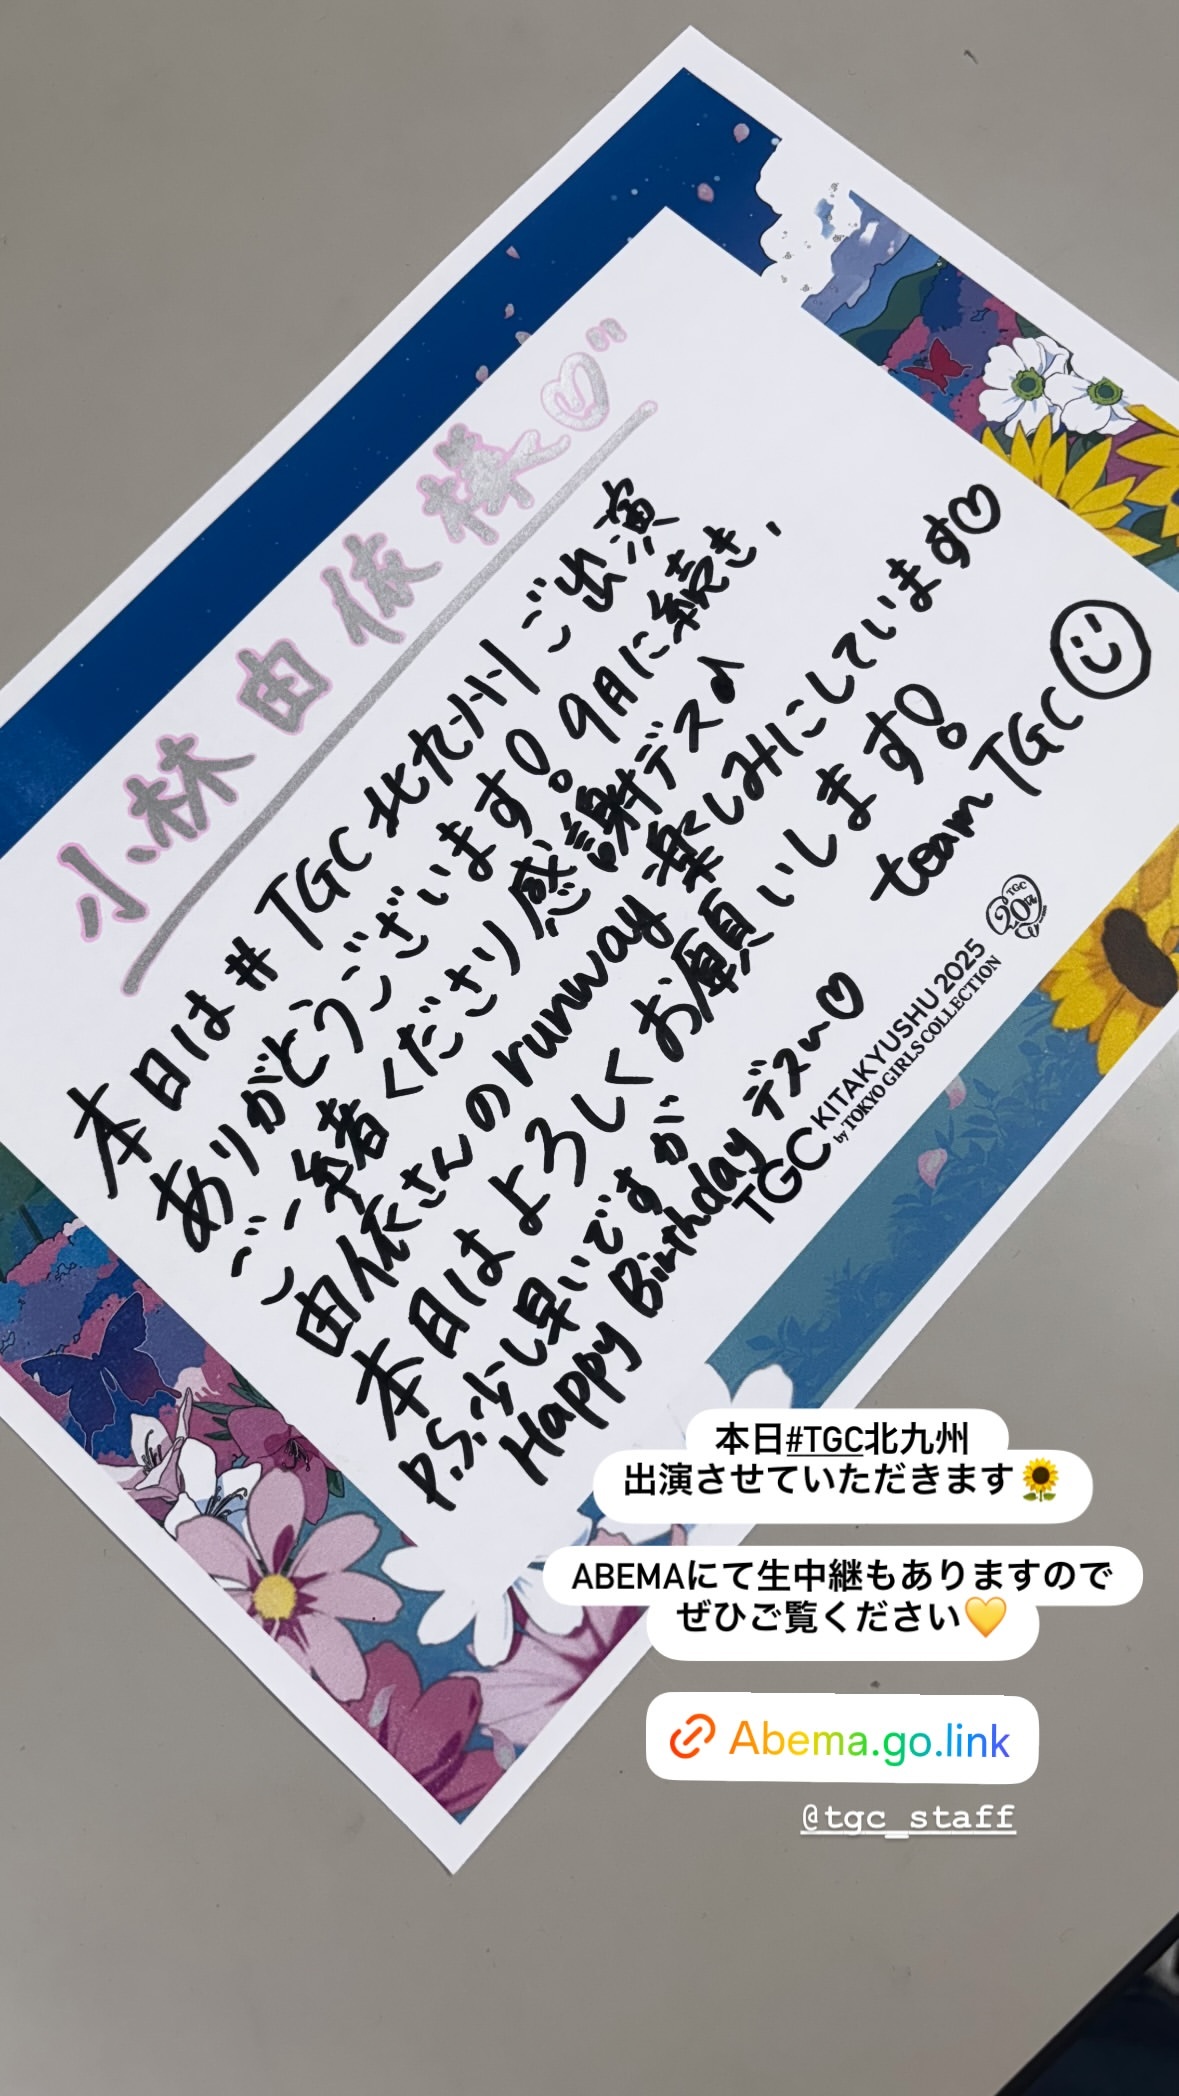 小林由依様♡"
本日は#TGC北九州ご出演
ありがとうございます!9月に続き、
ご一緒くださり感謝デス♪
由依さんのrunway楽しみにしています♡
本日はよろしくお願いします!
team TGC
P.S.少し早いですが
Happy Birthday デス〜♡
TGC KITAKYUSHU 2025
by TOKYO GIRLS COLLECTION
TGC
20th
本日#TGC北九州
出演させていただきます🌻
ABEMAにて生中継もありますので
ぜひご覧ください💛
Abema.go.link
@tgc_staff